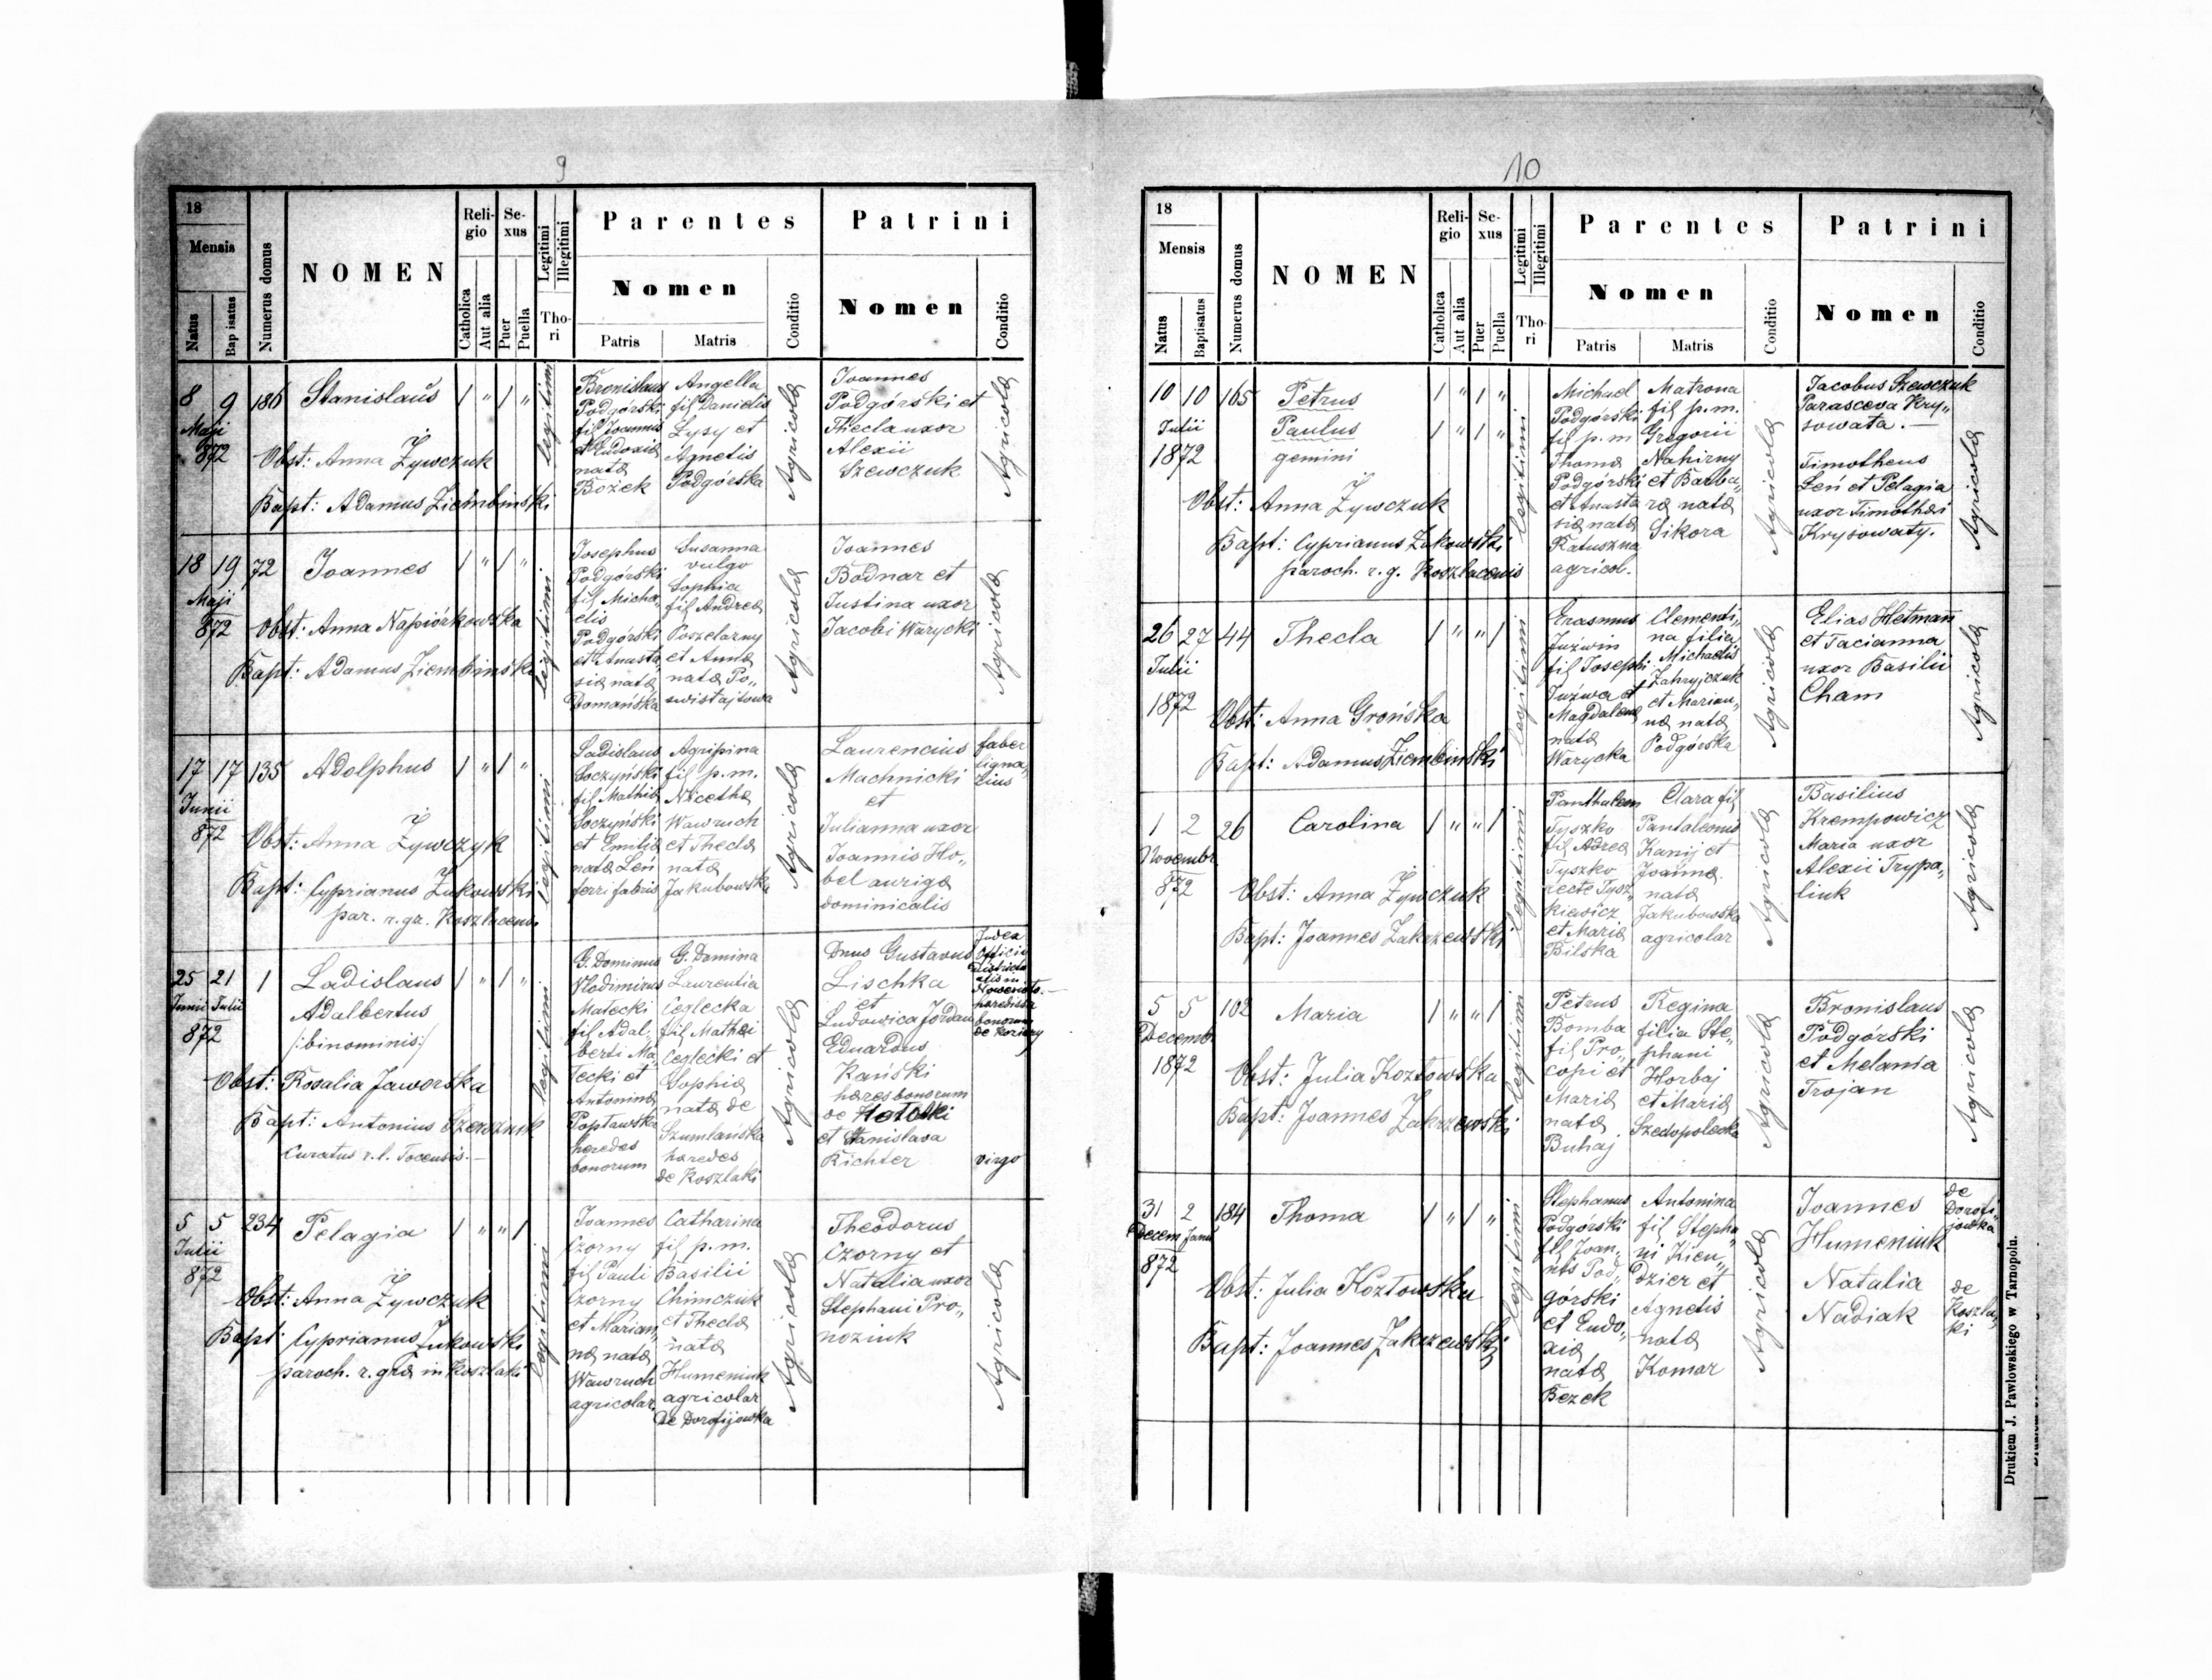 9
18
Mensis
Natus
Bap isatus
Numerus domus
NOMEN
Reli-
gio
Catholica
Aut alia
Se-
xus
Puer
Puella
Legitimi
Illegitimi
Tho-
ri
Parentes
Nomen
Patris
Matris
Conditio
Patrini
Nomen
Conditio
8 9 186 Stanislaus / " / "
Maji
872
Obst: Anna Żywczuk
Bapt: Adamus Ziembinski
legitimi
Bronislaus
Podgórski
fil Joannis
et Eudoxia
nata
Bożek
Angella
fil Danielis
Łysy et
Agnetis
Podgórska
Agricola
Joannes
Podgórski et
Thecla uxor
Alexii
Szewczuk
Agricola
18 19 72 Joannes / " / "
Maji
872
Obst: Anna Napiórkowska
Bapt: Adamus Ziembinski
legitimi
Josephus
Podgórski
fil Micha„
elis
Podgórski
et Anasta„
sia nata
Domańska
Susanna
vulgo
Sophia
fil Andrea
Poszelarny
et Anna
nata Po„
swistajtowa
Agricola
Joannes
Bodnar et
Justina uxor
Jacobi Warycki
Agricola
17 17 135 Adolphus / " / "
Junii
872
Obst: Anna Żywczyk
Bapt: Cyprianus Żukowski
par. r. gr. Koszlacensis
legitimi
Ladislaus
Soczyński
fil Mathia
Soczyński
et Emilia
nata Leń
ferri fabris
Agripina
fil p. m.
Nicetha
Wawruch
et Thecla
nata
Jakubowska
Agricola
Laurencius
Machnicki
et
Julianna uxor
Joannis Ho„
bel auriga
dominicalis
faber
ligna„
rius
25 21 1 Ladislaus / " / "
Junii Julii
872
Adalbertus
/:binominis:/
Obst: Rosalia Jaworska
Bapt: Antonius
Curatus r. l. Tocensis.—
legitimi
G. Dominus
Wlodimirus
Małecki
fil Adal„
berti Ma„
łecki et
Antonina
Popławska
heredes
bonorum
G. Domina
Laurentia
Ceglecka
fil Mathæi
Ceglecki et
Sophia
nata de
Szumlańska
hæredes
de Koszlaki
Agricola
Dnus Gustavus
Lischka
et
Ludowica Jordan
Eduardus
Kański
hæres bonorum
de
et Stanislava
Richter
Judex
Officii
bonorum
virgo
5 5 234 Pelagia / " " /
Julii
872
Obst: Anna Żywczuk
Bapt: Cyprianus Żukowski
paroch. r. gra in Koszlaki
legitimi
Joannes
Czorny
fil Pauli
Czorny
et Marian„
na nata
Wawruch
agricolar.
Catharina
fil p. m.
Basilii
Chimczuk
et Thecla
nata
Humeniuk
agricolar
de Dorofijowka
Agricola
Theodorus
Czorny et
Natalia uxor
Stephani Pro„
noziuk
Agricola
10
18
Mensis
Natus
Baptisatus
Numerus domus
NOMEN
Reli-
gio
Catholica
Aut alia
Se-
xus
Puer
Puella
Legitimi
Illegitimi
Tho-
ri
Parentes
Nomen
Patris
Matris
Conditio
Patrini
Nomen
Conditio
10 10 165 Petrus / " / "
Julii
1872
Paulus / " / "
gemini
Obst: Anna Żywczuk
Bapt: Cyprianus Żukowski
paroch. r. g. Koszlacensis
legitimi
Michael
Podgórski
fil p. m
Thoma
Podgórski
et Anasta
sia nata
Ratuszna
agricol.
Matrona
fil p. m.
Gregorii
Nahirny
et Barba„
ra nata
Sikora
Agricola
Jacobus Szewczuk
Parasceva Kry„
sowata.—
Timotheus
Leń et Pelagia
uxor Timothæi
Krysowaty.
Agricola
26 27 44 Thecla / " " /
Julii
1872
Obst: Anna Grońska
Bapt: Adamus Ziembinski
legitimi
Erasmus
Juźwin
fil Josephi
Juźwa et
Magdalena
nata
Warycka
Clementi„
na filia
Michaelis
Zahryjczuk
et Marian„
na nata
Podgórska
Agricola
Elias Hetmann
et Tacianna
uxor Basilii
Cham
Agricola
1 2 26 Carolina / " " /
Novembr
872
Obst: Anna Żywczuk
Bapt: Joannes Zakrzewski
legitimi
Panthaleon
Tyszko
fil Adrea
Tyszko
recte Tysz„
kiewicz
et Maria
Bilska
Clara fil
Pantaleonis
Kanij et
Joanna
nata
Jakubowska
agricolar
Agricola
Basilius
Krempowicz
Maria uxor
Alexii Trypa„
liuk
Agricola
5 5 102 Maria / " " /
Decembr
1872
Obst: Julia Kozłowska
Bapt: Joannes Zakrzewski
legitimi
Petrus
Bomba
fil Pro„
copi et
Maria
nata
Buhaj
Regina
filia Ste„
phani
Horbaj
et Maria
Szedopolecka
Agricola
Bronislaus
Podgórski
et Melania
Trojan
Agricola
31 2 184 Thoma / " / "
Decem Janu
872
Obst: Julia Kozłowska
Bapt: Joannes Zakrzewski
legitimi
Stephanus
Podgórski
fil Joan„
nis Pod„
górski
et Eudo„
xia
nata
Bezek
Antonina
fil Stepha„
ni Kien„
dzier et
Agnetis
nata
Komar
Agricola
Joannes
Humeniuk
Natalia
Nadiak
de
Dorofi„
jowka
de
Koszla„
ki
Drukiem J. Pawłowskiego w Tarnopolu.